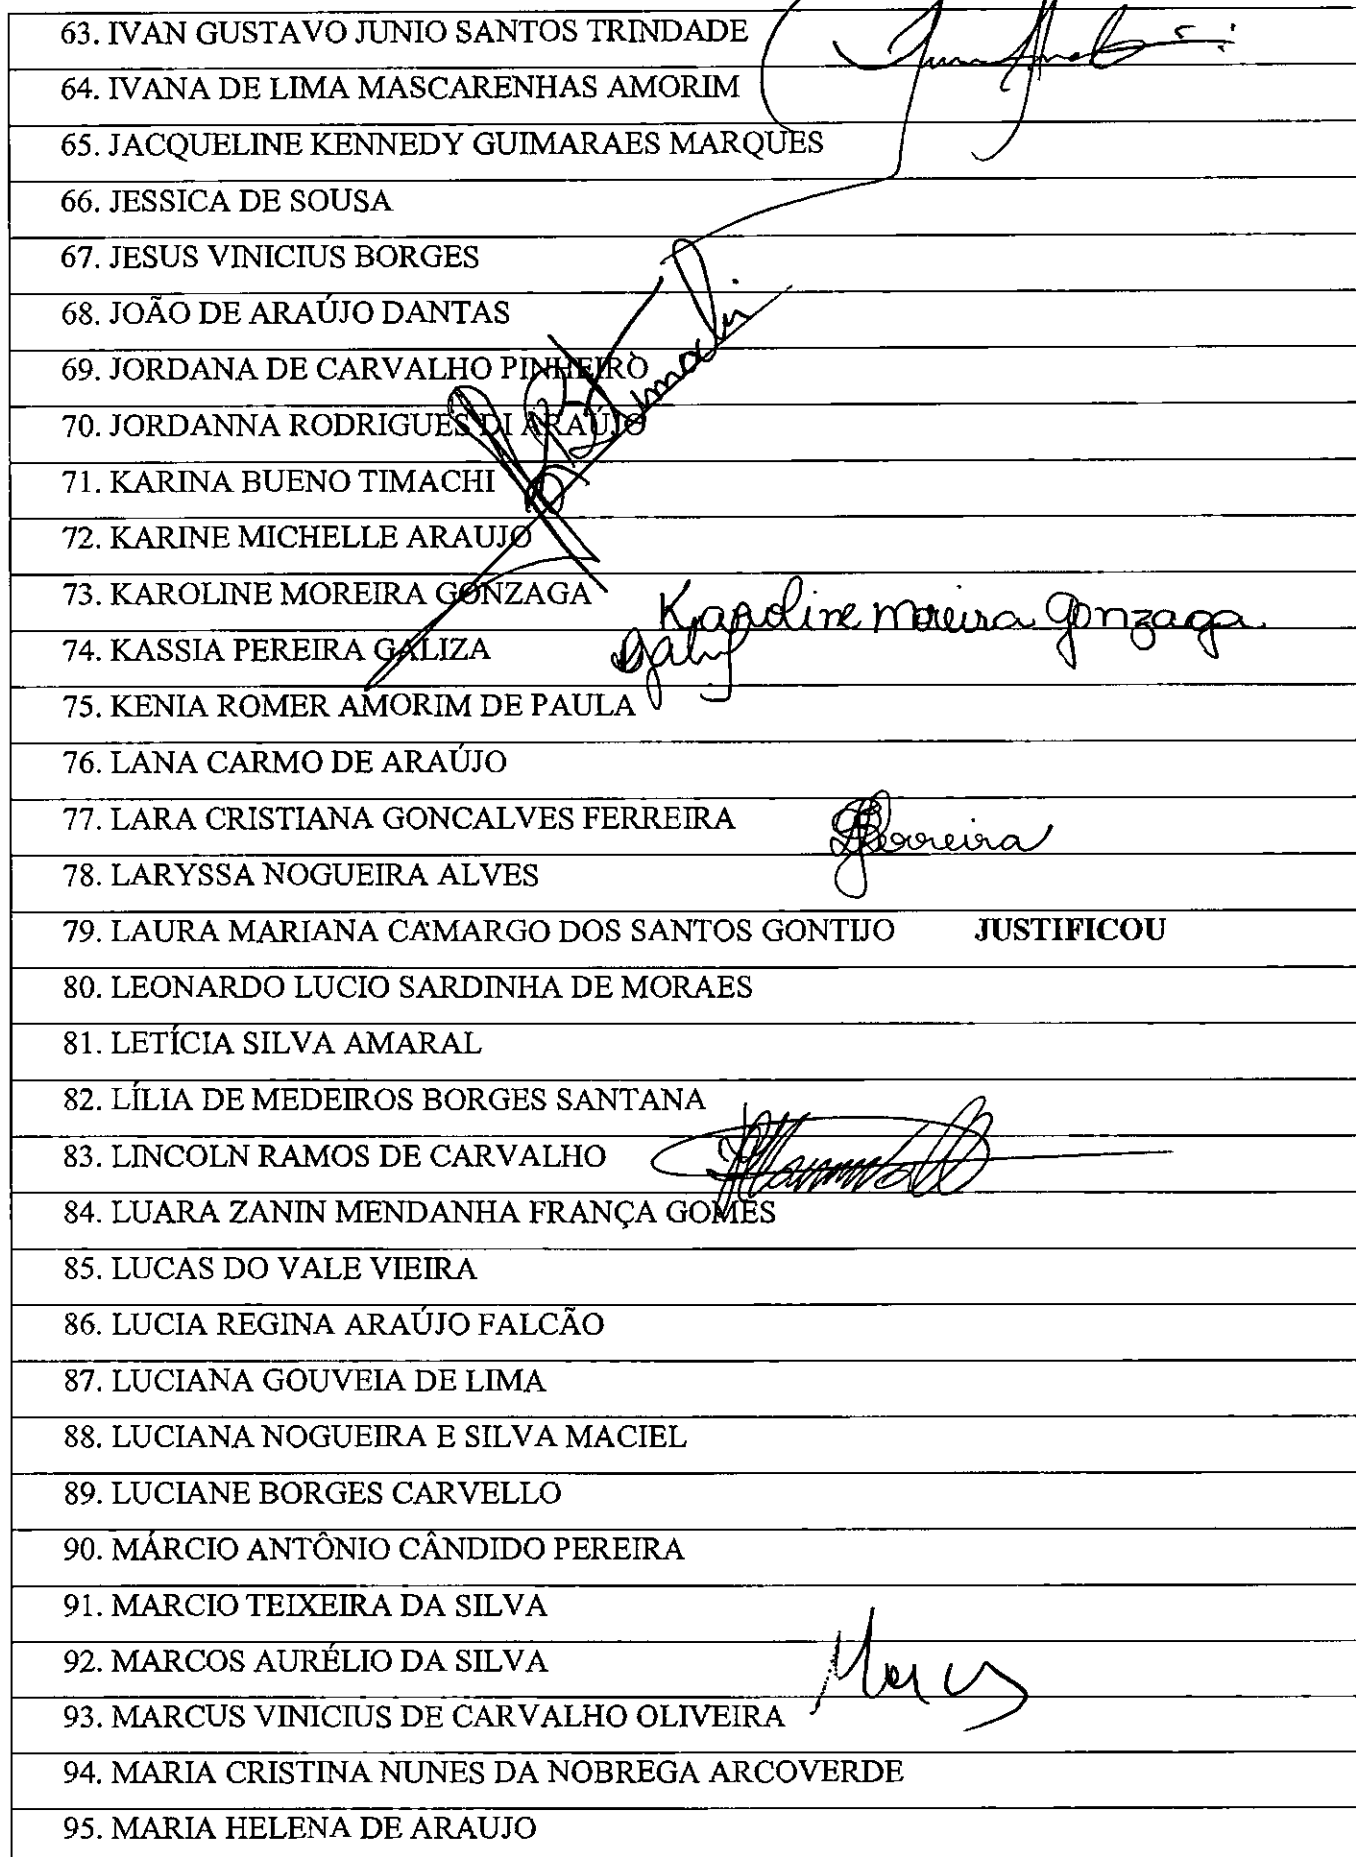 63. IVAN GUSTAVO JUNIO SANTOS TRINDADE
64. IVANA DE LIMA MASCARENHAS AMORIM
65. JACQUELINE KENNEDY GUIMARAES MARQUES
66. JESSICA DE SOUSA
67. JESUS VINICIUS BORGES
68. JOÃO DE ARAÚJO DANTAS
69. JORDANA DE CARVALHO PINHEIRO
70. JORDANNA RODRIGUES DI ARAÚJO
71. KARINA BUENO TIMACHI
72. KARINE MICHELLE ARAUJO
73. KAROLINE MOREIRA GONZAGA Karoline Moreira Gonzaga
74. KASSIA PEREIRA GALIZA
75. KENIA ROMER AMORIM DE PAULA
76. LANA CARMO DE ARAÚJO
77. LARA CRISTIANA GONCALVES FERREIRA Ferreira
78. LARYSSA NOGUEIRA ALVES
79. LAURA MARIANA CAMARGO DOS SANTOS GONTIJO JUSTIFICOU
80. LEONARDO LUCIO SARDINHA DE MORAES
81. LETÍCIA SILVA AMARAL
82. LÍLIA DE MEDEIROS BORGES SANTANA
83. LINCOLN RAMOS DE CARVALHO
84. LUARA ZANIN MENDANHA FRANÇA GOMES
85. LUCAS DO VALE VIEIRA
86. LUCIA REGINA ARAÚJO FALCÃO
87. LUCIANA GOUVEIA DE LIMA
88. LUCIANA NOGUEIRA E SILVA MACIEL
89. LUCIANE BORGES CARVELLO
90. MÁRCIO ANTÔNIO CÂNDIDO PEREIRA
91. MARCIO TEIXEIRA DA SILVA
92. MARCOS AURÉLIO DA SILVA
93. MARCUS VINICIUS DE CARVALHO OLIVEIRA
94. MARIA CRISTINA NUNES DA NOBREGA ARCOVERDE
95. MARIA HELENA DE ARAUJO